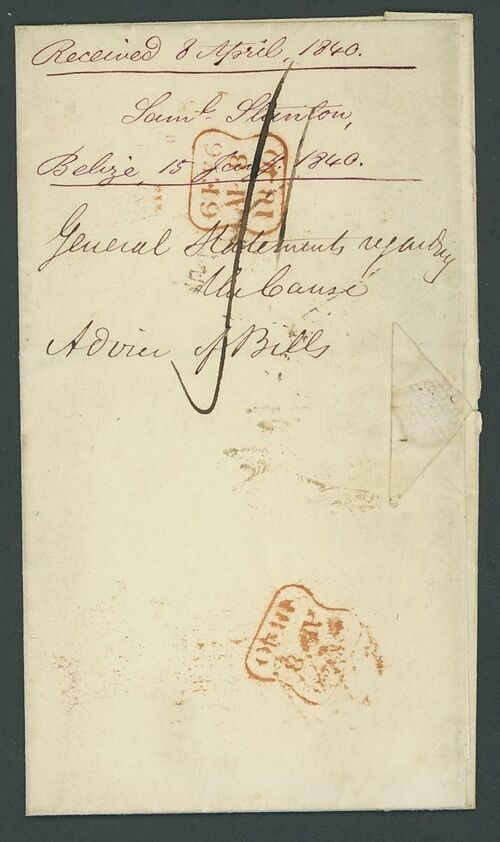 Received 8 April, 1840.
Saml. Stanton,
Belize, 15 Jany. 1840.
General Statements regarding
the Cause
Advice of Bills
1840